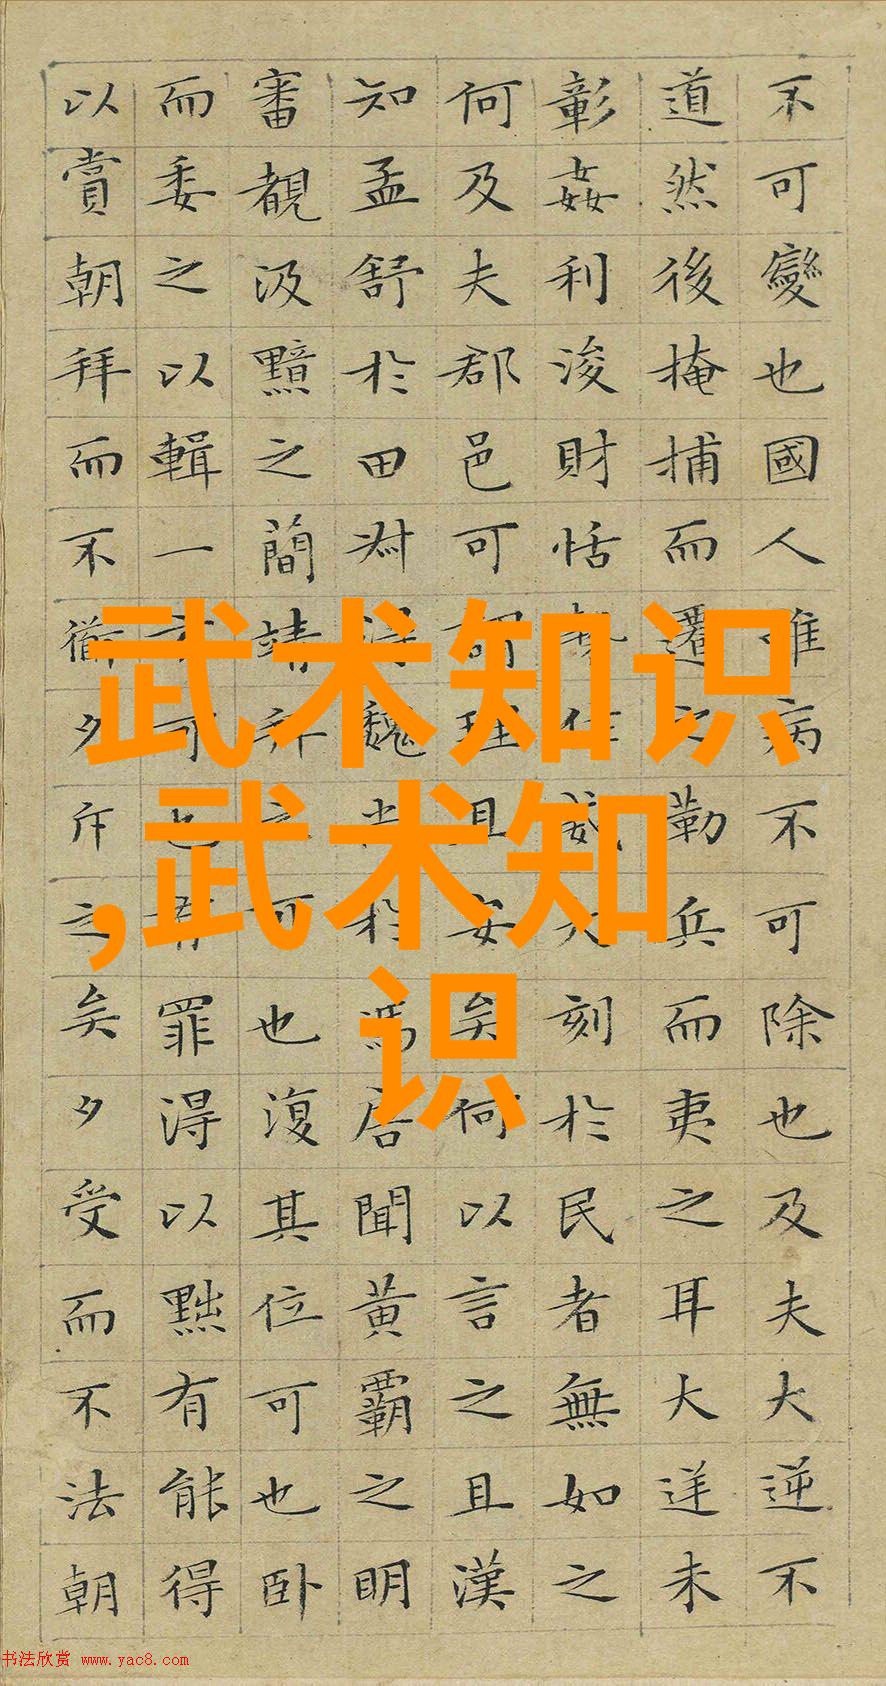 不可變也國人雖病不可除也及夫大逆不
道然後掩捕而遷之勒兵而夷之耳大逆未
彰姦利浚財怙勢作威大刻於民者無如之
何及夫郡邑可謂理且安矣何以言之且漢
知孟舒於田叔得魏尚於馮唐聞黃霸之明
審覩汲黯之簡靖拜之可也復其位可也卧
而委之以輯一方可也有罪得以黜有能得
以賞朝拜而不道夕斥之矣夕受而不法朝
武术知识
,武术知
识
书法欣赏 www.yac8.com